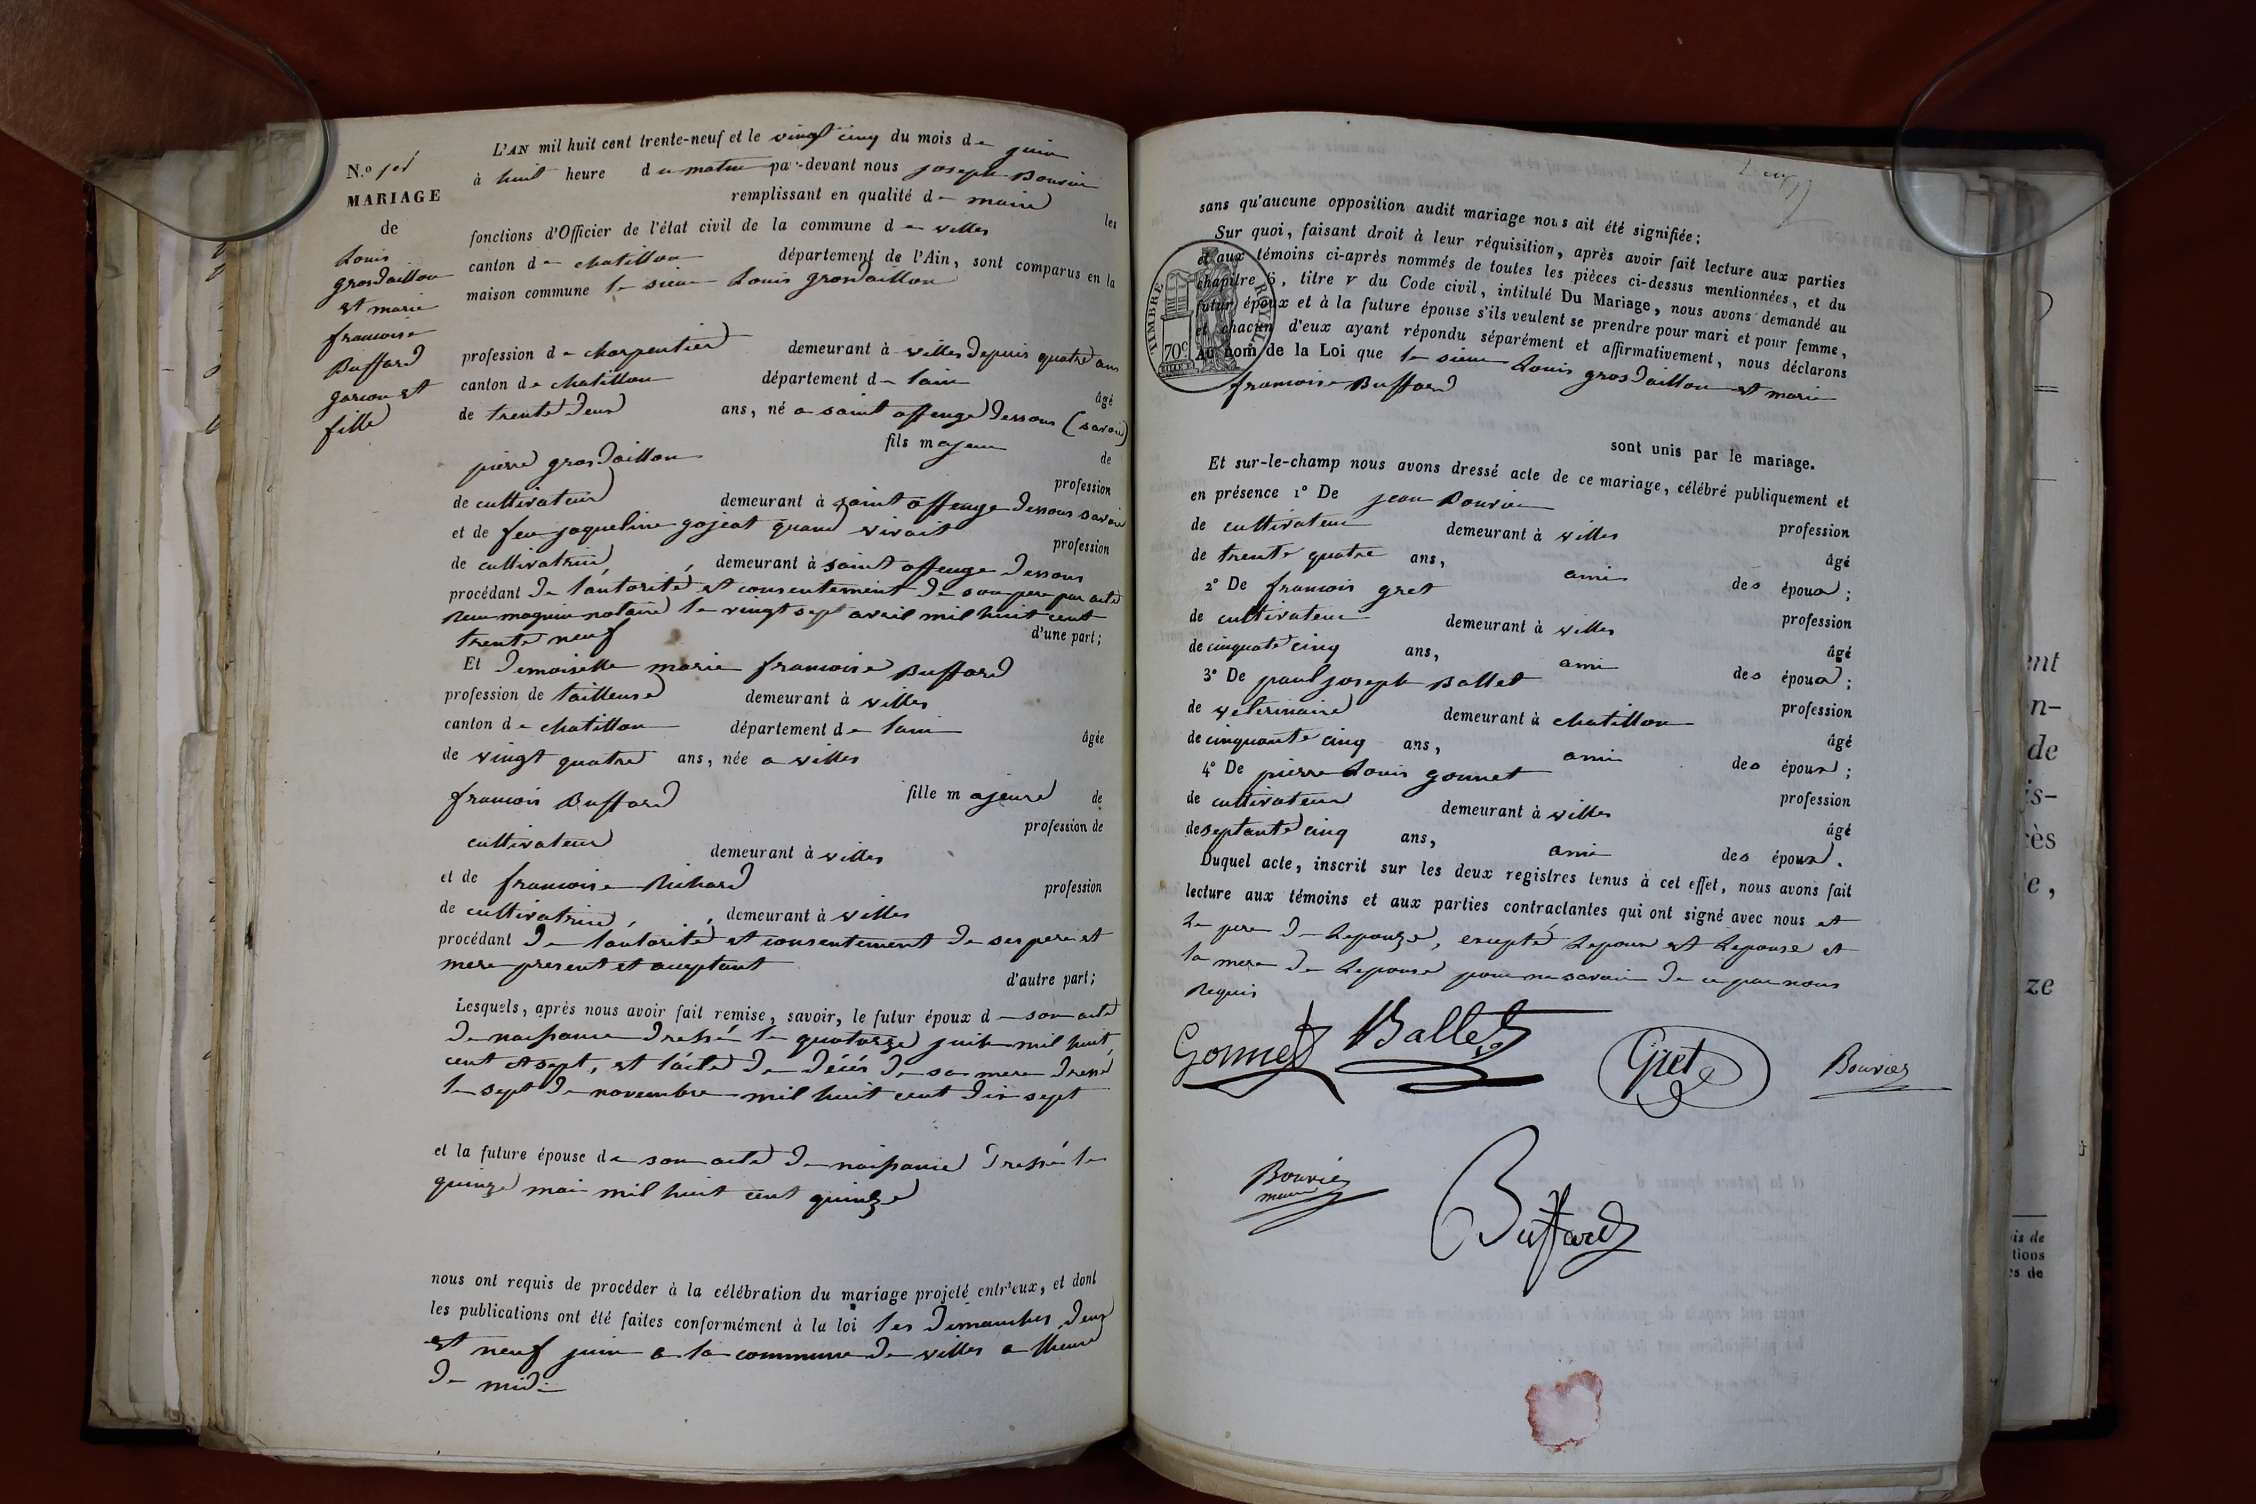 N.o
MARIAGE
de
Louis
grosdaillon
et marie
francoise
Buffard
garcon et
fille
L'AN mil huit cent trente-neuf et le vingt cinq du mois de juin
à huit heure du matin par-devant nous joseph Bouvier
remplissant en qualité de maire les
fonctions d'Officier de l'état civil de la commune de villes
canton de chatillon département de l'Ain, sont comparus en la
maison commune le sieur Louis grosdaillon
profession de charpentier demeurant à villes depuis quatre ans
canton de chatillon département de lain âgé
de trente deux ans, né a saint offenge dessous (savoie)
fils majeur de
pierre grosdaillon profession
de cultivateur demeurant à saint offenge dessous savoie
et de feu jaqueline gojeat quand vivait profession
de cultivatrice, demeurant à saint offenge dessous
procédant de lautorité et consentement de son pere par acte
Recu maguin notaire le vingt sept avril mil huit cent
trente neuf d'une part;
Et demoiselle marie francoise Buffard
profession de tailleuse demeurant à villes
canton de chatillon département de lain âgée
de vingt quatre ans, née a villes
fille majeure de
francois Buffard profession de
cultivateur demeurant à villes
et de francoise Richard profession
de cultivatrice, demeurant à villes
procédant de lautorité et consentement de ses pere et
mere present et acceptant d'autre part;
Lesquels, après nous avoir fait remise, savoir, le futur époux de son acte
de naissance dressé le quatorze juin mil huit
cent et sept, et lacte de décés de sa mere dressé
le sept de novembre mil huit cent dix sept
et la future épouse de son acte de naissance dressé le
quinze mai mil huit cent quinze
nous ont requis de procéder à la célébration du mariage projeté entr'eux, et dont
les publications ont été faites conformément à la loi les dimanches deux
et neuf juin a la commune de villes a lheure
de midi
sans qu'aucune opposition audit mariage nous ait été signifiée;
Sur quoi, faisant droit à leur réquisition, après avoir fait lecture aux parties
et aux témoins ci-après nommés de toutes les pièces ci-dessus mentionnées, et du
chapitre 6, titre V du Code civil, intitulé Du Mariage, nous avons demandé au
futur époux et à la future épouse s'ils veulent se prendre pour mari et pour femme,
et chacun d'eux ayant répondu séparément et affirmativement, nous déclarons
Au nom de la Loi que le sieur Louis grosdaillon et marie
francoise Buffard
TIMBRE ROYAL
70c
sont unis par le mariage.
Et sur-le-champ nous avons dressé acte de ce mariage, célébré publiquement et
en présence 1° De jean Bouvier profession
de cultivateur demeurant à villes âgé
de trente quatre ans, ami des époux;
2° De francois gret profession
de cultivateur demeurant à villes âgé
de cinquate cinq ans, ami des époux;
3° De paul joseph Ballet profession
de veterinaire demeurant à chatillon âgé
de cinquante cinq ans, ami des époux;
4° De pierre Louis gonnet profession
de cultivateur demeurant à villes âgé
de septante cinq ans, ami des époux.
Duquel acte, inscrit sur les deux registres tenus à cet effet, nous avons fait
lecture aux témoins et aux parties contractantes qui ont signé avec nous et
Le pere de Lepouze, excepté Lepoux et Lepouse et
la mere de Lepouse pour ne savoir de ce par nous
Requis
Gonnet Ballet Gret Bouvier
Bouvier
maire
Buffard
ent
n-
de
is-
ès
e,
ze
is de
tions
es de